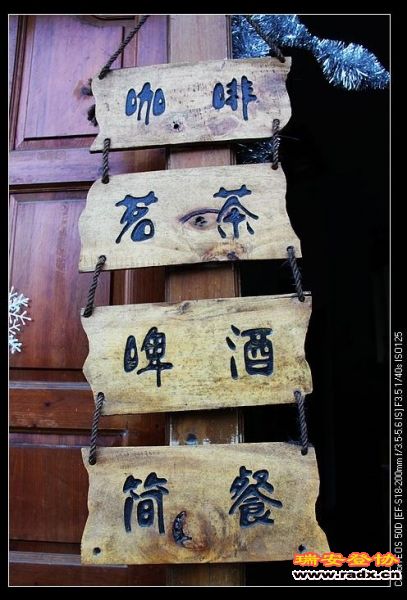 咖啡
茗茶
啤酒
简餐
瑞安登协
www.radx.cn
EOS 50D [EF-S18-200mm f/3.5-5.6 IS] F3.5 1/40s ISO125